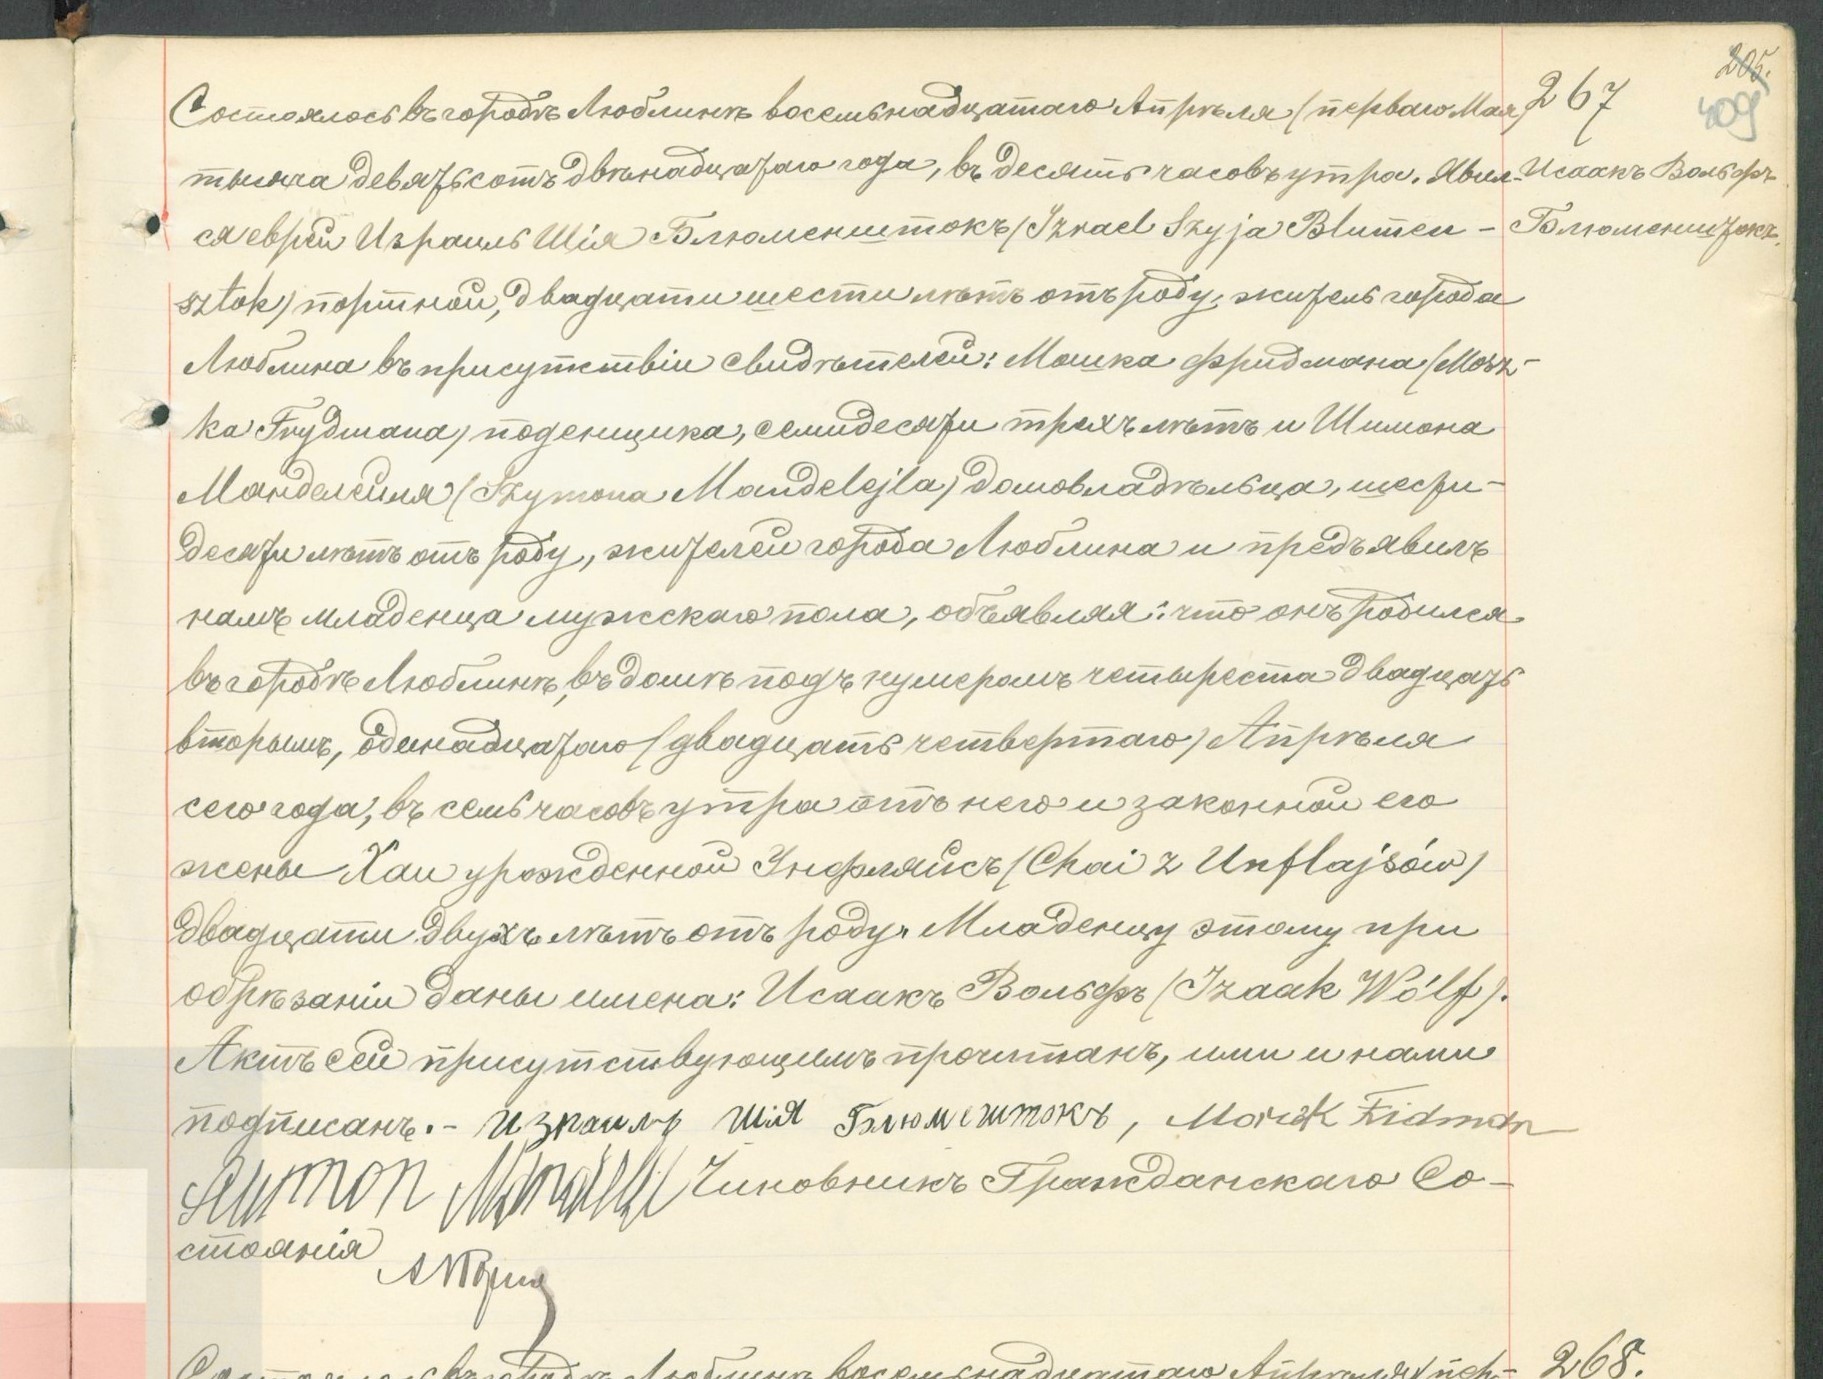 205.
409
267
Исаакъ Вольфъ
Блюменштокъ.
Состоялось въ городѣ Люблинѣ восемьнадцатаго Апрѣля (перваго Мая)
тысяча девятьсотъ двѣнадцатаго года, въ десять часовъ утра. Явил-
ся еврей Израиль Шія Блюменштокъ (Izrael Szyja Blumen-
sztok) портной, двадцати шести лѣтъ отъ роду, житель города
Люблина въ присутствіи свидѣтелей: Мошка Фридмана (Mosz-
ka Frydmana) поденщика, семидесяти трехъ лѣтъ и Шимона
Манделейля (Szymona Mandelejla) домовладѣльца, шести-
десяти лѣтъ отъ роду, жителей города Люблина и предъявилъ
намъ младенца мужскаго пола, объявляя: что онъ родился
въ городѣ Люблинѣ, въ домѣ подъ нумеромъ четыреста двадцать
вторымъ, одинадцатаго (двадцать четвертаго) Апрѣля
сего года, въ семь часовъ утра отъ него и законной его
жены Хаи урожденной Унфляйсъ (Chai z Unflajsów)
двадцати двухъ лѣтъ отъ роду. Младенцу этому при
обрѣзаніи даны имена: Исаакъ Вольфъ (Izaak Wólf).
Актъ сей присутствующимъ прочитанъ, ими и нами
подписанъ.- Израиль Шія Блюмештокъ, Morek Fridman
Szymon Чиновникъ Гражданскаго Со-
стоянія
268.
Состоялось въ городѣ Люблинѣ восемьнадцатаго Апрѣля (пер-